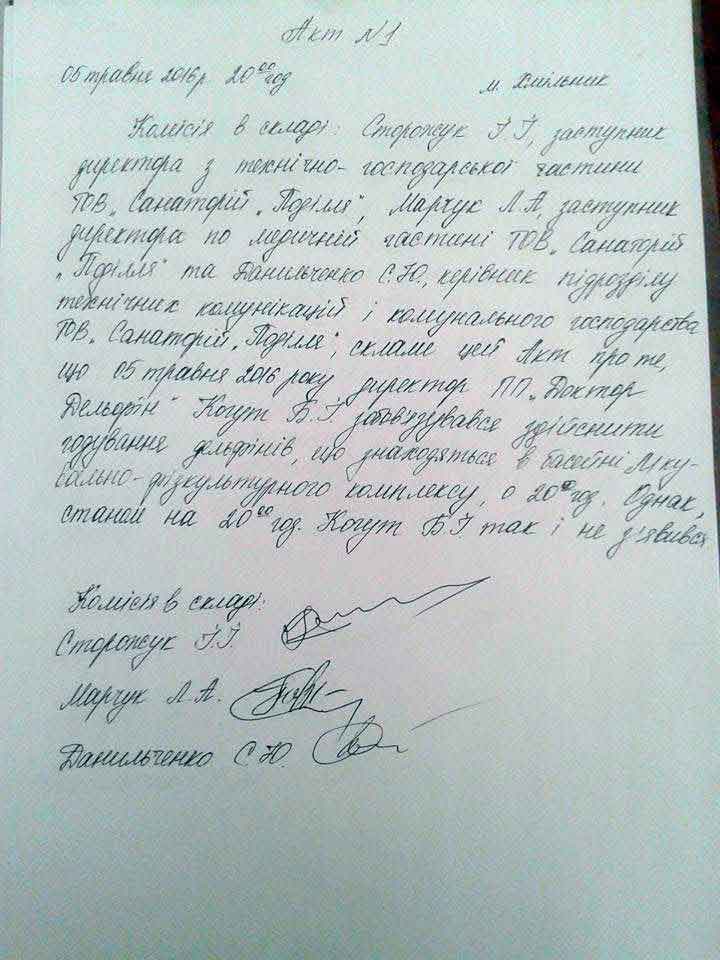 Акт №1
05 травня 2016 р. 20⁰⁰ год
м. Хмільник
Комісія в складі: Сторожук І.І, заступник
директора з технічно-господарської частини
ТОВ „Санаторій „Поділля", Марчук Л.А, заступник
директора по медичній частині ТОВ „Санаторій
„Поділля" та Данильченко С.Ю., керівник підрозділу
технічних комунікацій і комунального господарства
ТОВ „Санаторій „Поділля", склали цей Акт про те,
що 05 травня 2016 року директор ПП „Доктор
Дельфін" Когут Б.І. забов'язувався здійснити
годування дельфінів, що знаходяться в басейні Ліку-
вально-фізкультурного комплексу, о 20⁰⁰ год. Однак,
станом на 20⁰⁰ год. Когут Б.І так і не з'явився.
Комісія в складі:
Сторожук І.І.
Марчук Л.А.
Данильченко С.Ю.